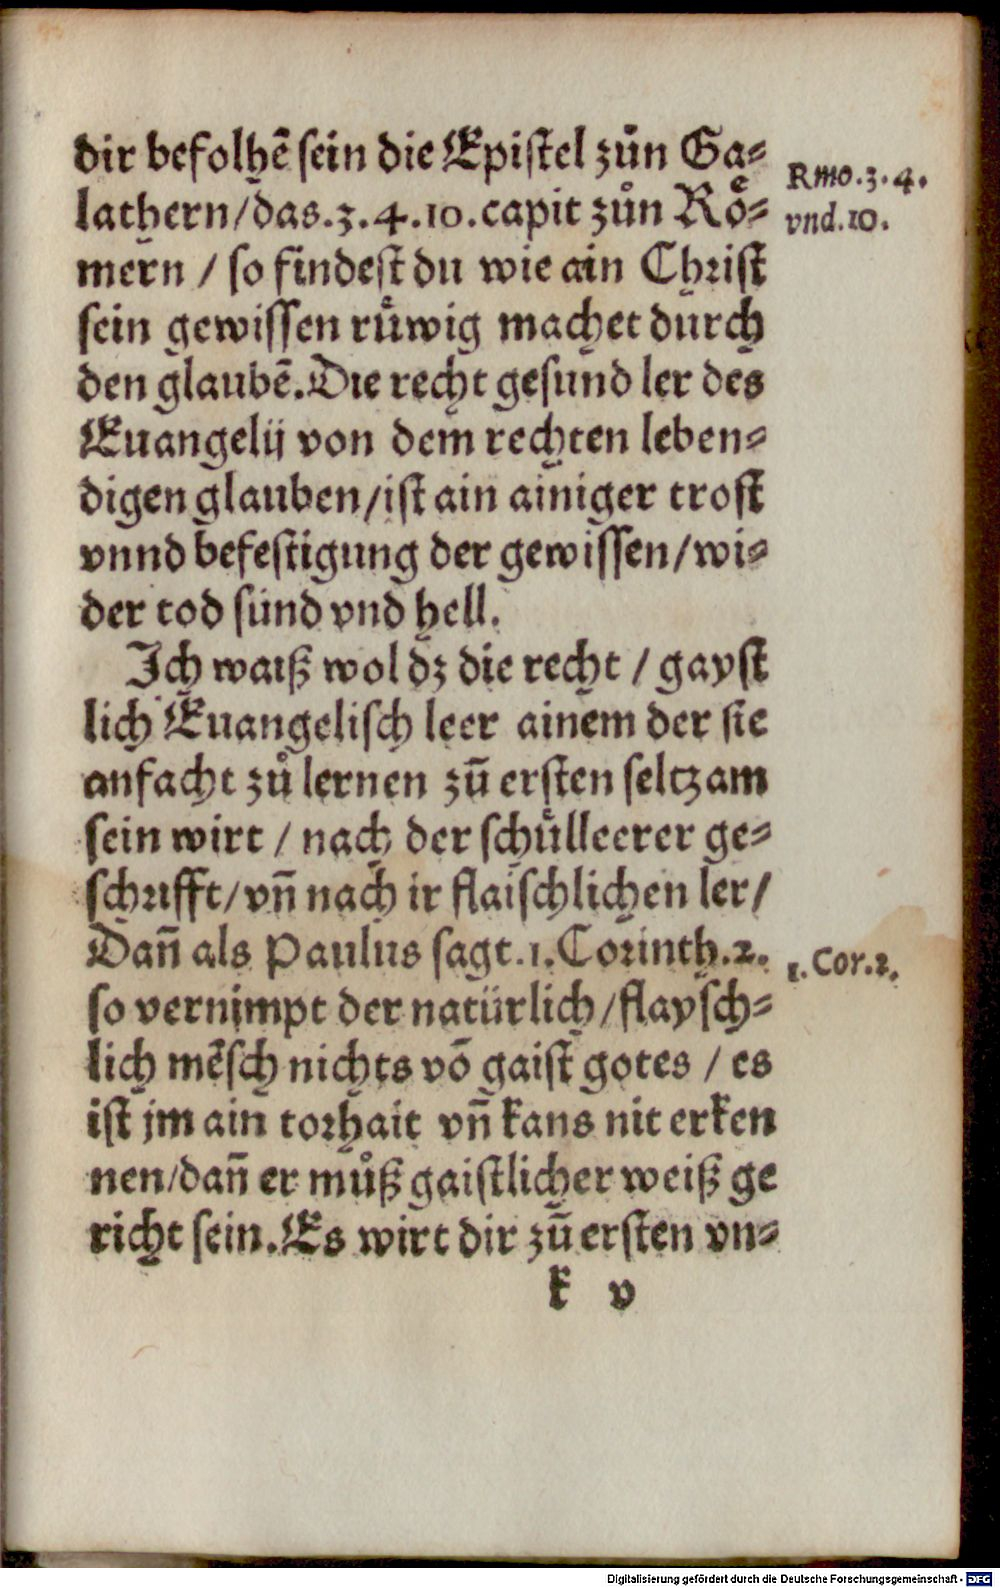 dir befolhē sein die Epistel zůn Ga⸗
lathern/das.3.4.10.capit zůn Roͤ⸗
mern / so findest du wie ain Christ
sein gewissen růwig machet durch
den glaubē.Die recht gesund ler des
Euangelij von dem rechten leben⸗
digen glauben/ist ain ainiger trost
vnnd befestigung der gewissen/wi⸗
der tod sünd vnd hell.
Ich waiß wol dz die recht / gayst
lich Euangelisch leer ainem der sie
anfacht zů lernen zū ersten seltzam
sein wirt / nach der schůlleerer ge⸗
schrifft/vn̄ nach ir flaischlichen ler/
Dan̄ als Paulus sagt.1.Corinth.2.
so vernimpt der natürlich/flaysch⸗
lich mēsch nichts vō gaist gotes / es
ist jm ain torhait vn̄ kans nit erken
nen/dan̄ er můß gaistlicher weiß ge
richt sein.Es wirt dir zū ersten vn⸗
k v
Rmo.3.4.
vnd.10.
1.Cor.2.
Digitalisierung gefördert durch die Deutsche Forschungsgemeinschaft - DFG